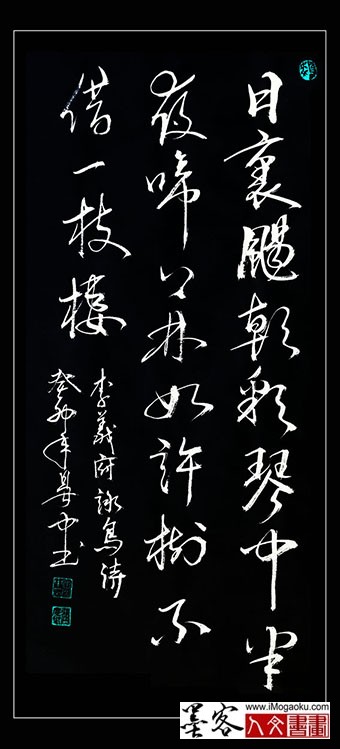 日裏颺朝彩琴中半
夜啼上林如許樹不
借一枝棲
李義府詠烏詩
癸卯年
www.iMogaoku.com
墨客人文書畫